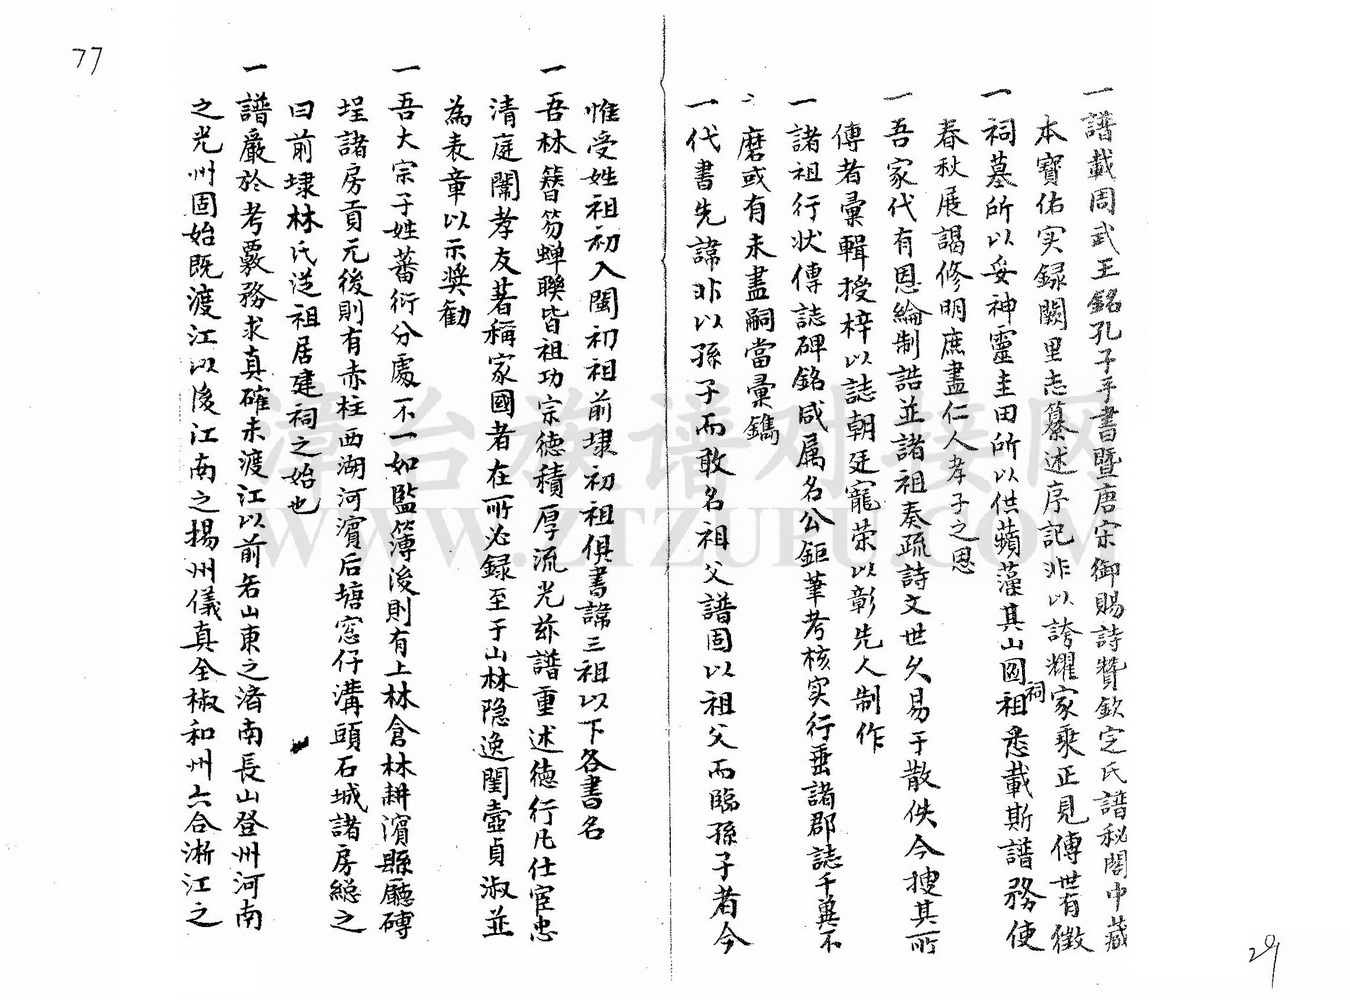 一譜載周武王銘孔子手書暨唐宋御賜詩贊欽定氏譜秘閣中藏
本寶佑实録闕里志纂述序記非以誇耀家乘正見傳世有徵
一祠墓所以妥神靈圭田所以供蘋藻其山圖祠祖悉載斯譜務使
春秋展謁修明庶盡仁人孝子之恩
一吾家代有恩綸制誥並諸祖奏疏詩文世久易于散佚今搜其所
傳者彙輯授梓以誌朝廷寵荣以彰先人制作
一諸祖行状傳誌碑銘咸属名公鉅筆考核实行垂諸郡誌千興不
磨或有未盡嗣當彙鐫
一代書先諱非以孫子而敢名祖父譜固以祖父而臨孫子者今
惟受姓祖初入閩初祖前埭初祖俱書諱三祖以下各書名
一吾林簪笏蟬聯皆祖功宗德積厚流光茲譜重述德行凡仕宦忠
清庭闈孝友著稱家國者在所必録至于山林隐逸閨壼貞淑並
為表章以示奨勸
一吾大宗子姓蕃衍分處不一如監簿後則有上林倉林耕濱縣廳磚
埕諸房貢元後則有赤柱西湖河濱后塘窓仔溝頭石城諸房總之
曰前埭林氏從祖居建祠之始也
一譜嚴於考覈務求真確未渡江以前若山東之濟南長山登州河南
之光州固始既渡江以後江南之揚州儀真全椒和州六合淅江之
77
29
漳台族谱对接网
WWW.ZTZUPU.COM